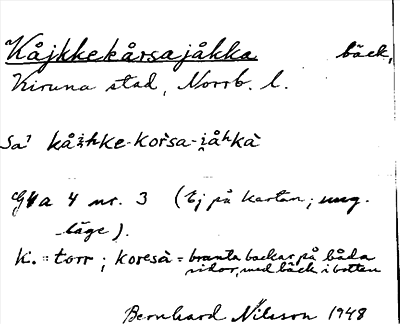 Kåjkkekårsajåkka bäck,
Kiruna stad, Norrb. l.
kåi̯hke-korsa-i̯åhkà
4 nr. 3 (Ej på kartan; ung.
läge).
K. = torr; koresà = branta backar på båda
sidor, med bäck i botten
Bernhard Nilsson 1948